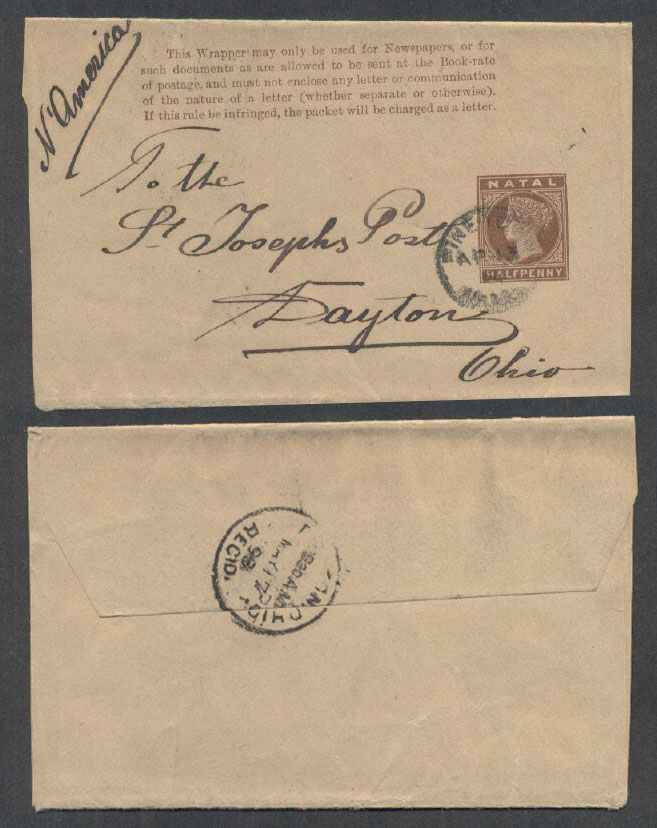 N. America
This Wrapper may only be used for Newspapers, or for
such documents as are allowed to be sent at the Book-rate
of postage, and must not enclose any letter or communication
of the nature of a letter (whether separate or otherwise).
If this rule be infringed, the packet will be charged as a letter.
To the
St Josephs Post
Dayton
Ohio
NATAL
HALFPENNY
REC'D.
98
MAY 17
830 AM